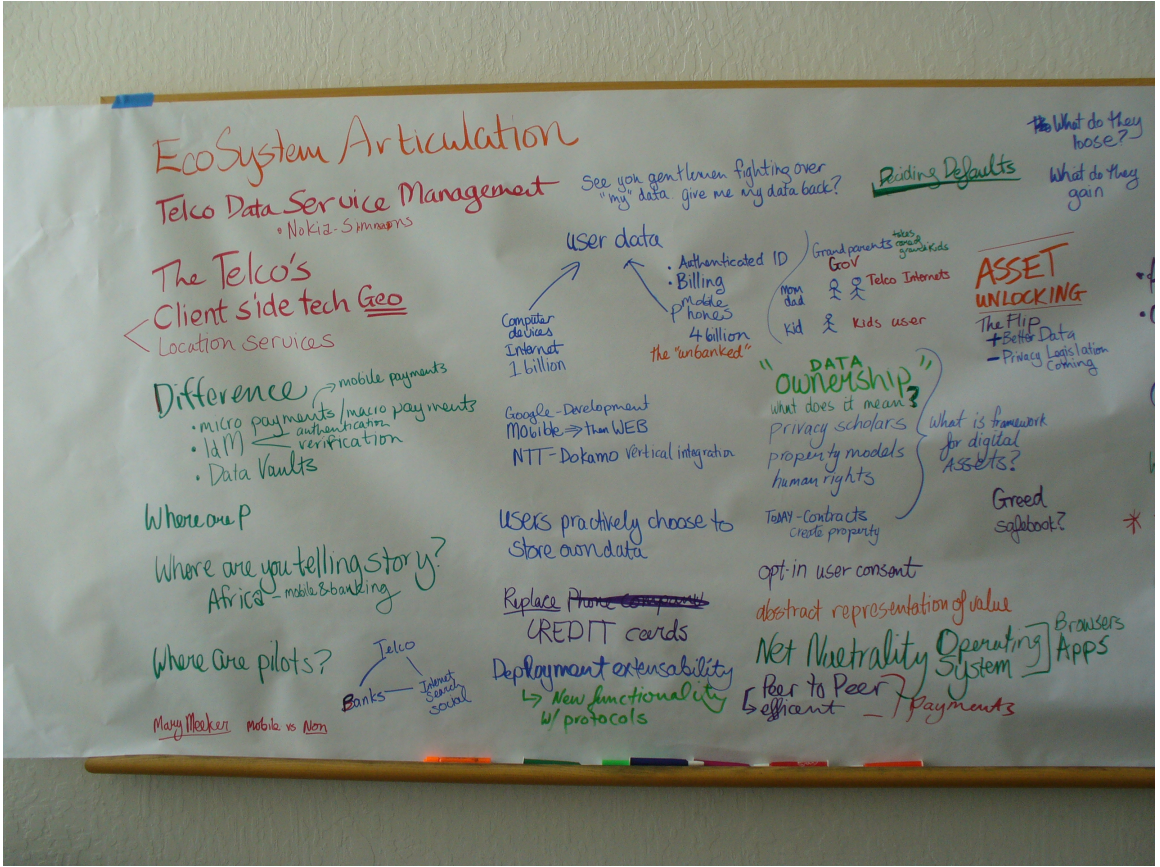 EcoSystem Articulation
Telco Data Service Management
• Nokia-Simmons
The Telco's
Client side tech Geo
Location services
Difference
mobile payments
• micro payments/macro payments
• IdM
authentication
verification
• Data Vaults
Where are P
Where are you telling story?
Africa - mobile & banking
Where are pilots?
Telco
Banks
Internet
Search
social
Mary Meeker Mobile vs Non
See you gentlemen fighting over
"my" data. give me my data back?
user data
Computer
devices
Internet
1 billion
• Authenticated ID
• Billing
mobile
phones
4 billion
the "unbanked"
Google-Development
Mobible ⇒ then WEB
NTT-Dokamo vertical integration
users practively choose to
store own data
Replace
CREDIT cards
Deployment extensability
↳ New functionality
w/ protocols
Deciding Defaults
Grandparents
grandkids
Gov
Mom
dad
Telco Internets
kid
Kids user
"DATA
ownership"
what does it mean?
privacy scholars
property models
human rights
TODAY-Contracts
create property
What is framework
for digital
ASSETS?
opt-in user consent
abstract representation of value
Net Nuetrality Operating
System
Browsers
Apps
Peer to Peer
↳ efficent
payments
What do they
loose?
What do they
gain
ASSET
UNLOCKING
The Flip
+ Better Data
- Privacy Legislation
Coming
Greed
safebook?
*